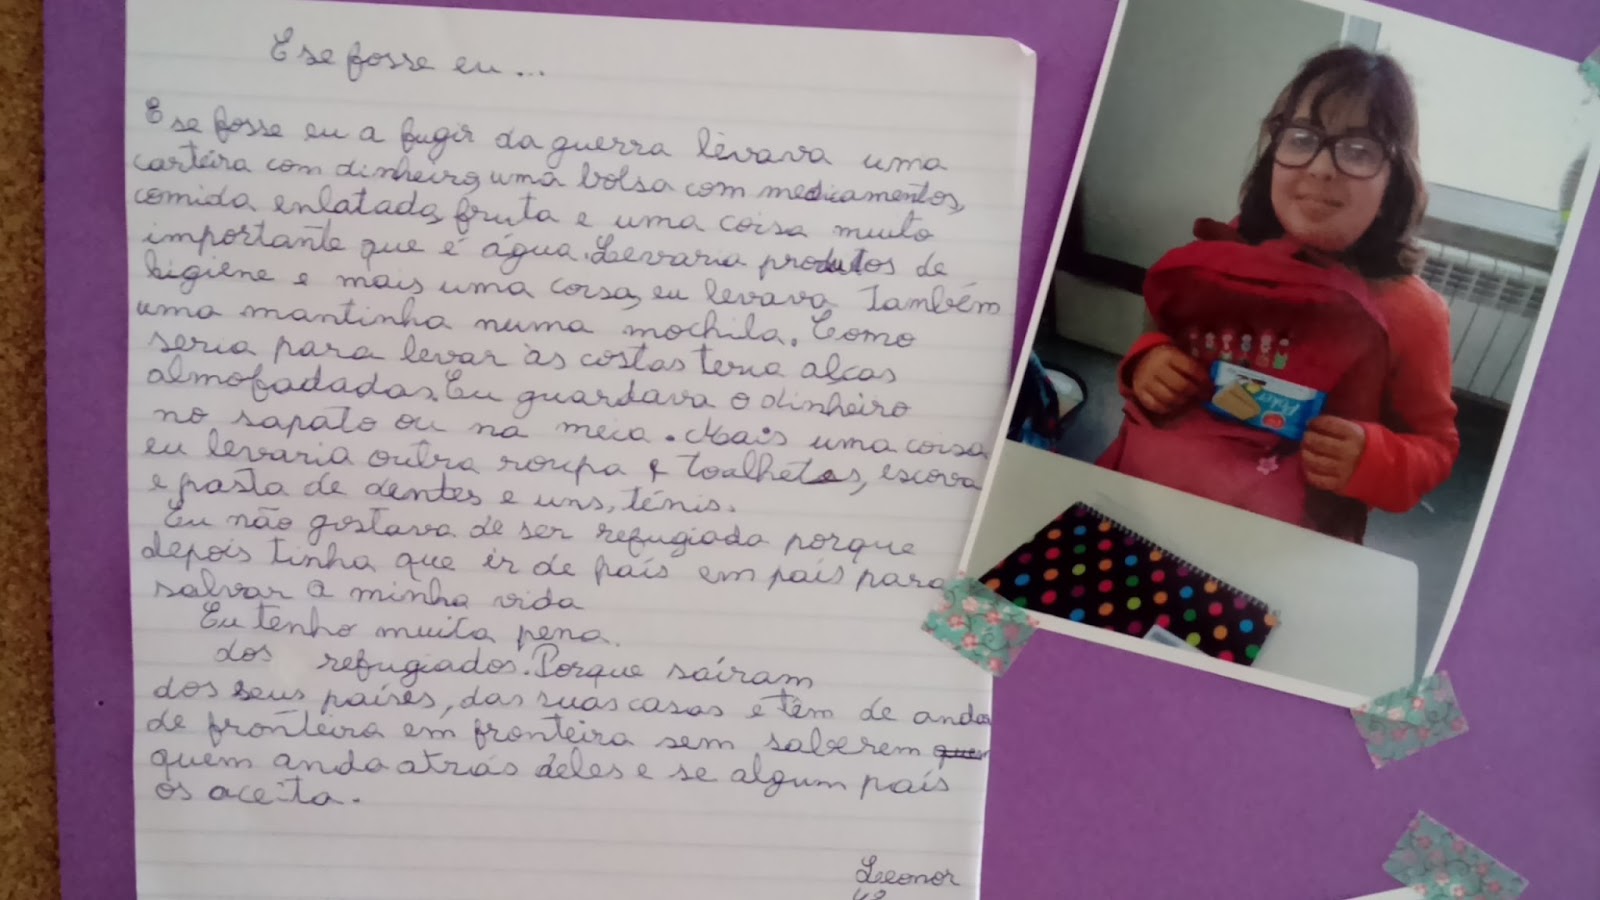 E se fosse eu...
E se fosse eu a fugir da guerra levava uma
carteira com dinheiro, uma bolsa com medicamentos,
comida enlatada, fruta e uma coisa muito
importante que é água. Levaria produtos de
higiene e mais uma coisa, eu levava também
uma mantinha numa mochila. Como
seria para levar às costas teria alças
almofadadas. Eu guardava o dinheiro
no sapato ou na meia. Mais uma coisa
eu levaria outra roupa e toalhetes, escova
e pasta de dentes e uns, ténis.
Eu não gostava de ser refugiada porque
depois tinha que ir de país em país para
salvar a minha vida
Eu tenho muita pena.
dos refugiados. Porque saíram
dos seus países, das suas casas e têm de andar
de fronteira em fronteira sem saberem quem
quem anda atrás deles e se algum país
os aceita.
Leonor